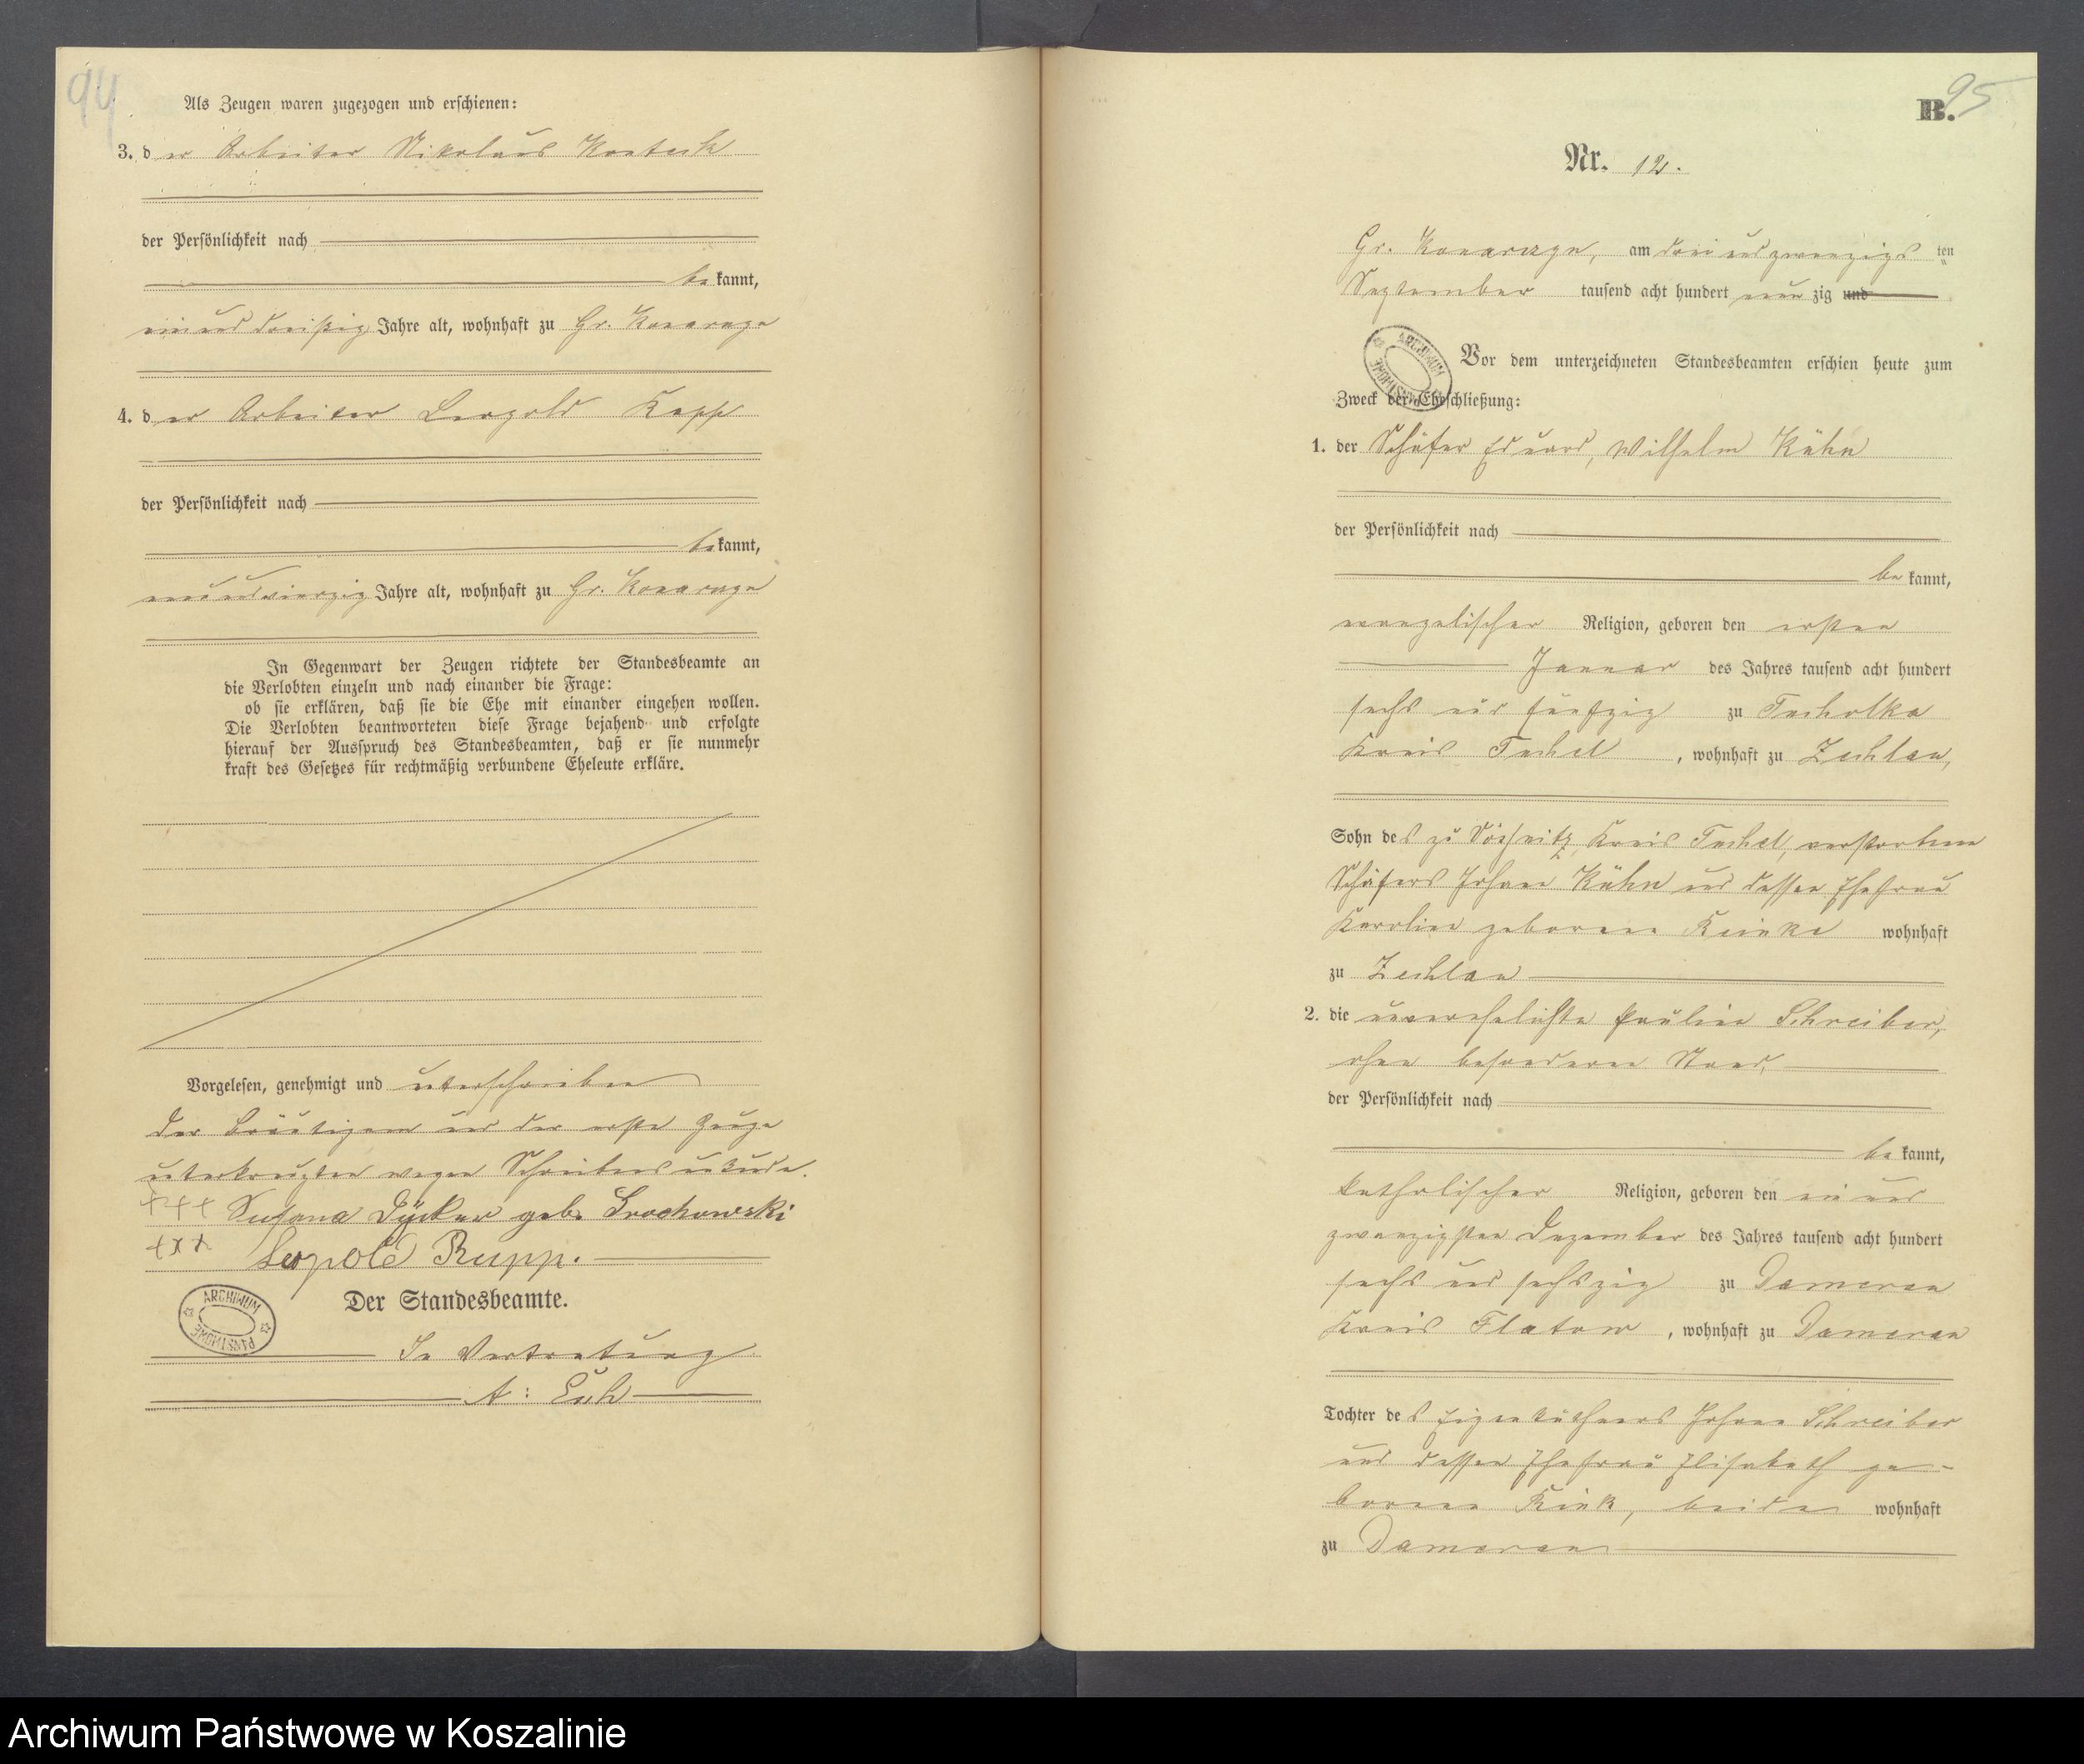 94
Als Zeugen waren zugezogen und erschienen:
3. der Arbeiter Nikolaus
der Persönlichkeit nach
bekannt,
ein und dreißig Jahre alt, wohnhaft zu Gr. Konarczyn
4. der Arbeiter Leopold Rupp
der Persönlichkeit nach
bekannt,
neun und vierzig Jahre alt, wohnhaft zu Gr. Konarczyn
In Gegenwart der Zeugen richtete der Standesbeamte an
die Verlobten einzeln und nach einander die Frage:
ob sie erklären, daß sie die Ehe mit einander eingehen wollen.
Die Verlobten beantworteten diese Frage bejahend und erfolgte
hierauf der Ausspruch des Standesbeamten, daß er sie nunmehr
kraft des Gesetzes für rechtmäßig verbundene Eheleute erkläre.
Vorgelesen, genehmigt und unterschrieben
der Bräutigam und der erste Zeuge
unterkreuzten wegen Schreibensunkunde.
+++ Susana Dücker geb. Grochowski
+++ Leopold Rupp.
Der Standesbeamte.
ARCHIWUM PAŃSTWOWE
In Vertretung
A:
B. 95
Nr. 12.
Gr. Konarczyn, am drei und zwanzigsten
September tausend acht hundert neunzig und
ARCHIWUM PAŃSTWOWE
Vor dem unterzeichneten Standesbeamten erschien heute zum
Zweck der Eheschließung:
1. der Schäfer Eduard, Wilhelm Kühn
der Persönlichkeit nach
bekannt,
evangelischer Religion, geboren den ersten
Januar des Jahres tausend acht hundert
sechs und fünfzig zu Tucholka
Kreis Tuchel, wohnhaft zu Zechlau,
Sohn des zu Kreis Tuchel, verstorbenen
Schäfers Johann Kühn und dessen Ehefrau
Karoline geborene wohnhaft
zu Zechlau
2. die unverehelichte Pauline Schreiber,
ohne besonderen Stand,
der Persönlichkeit nach
bekannt,
katholischer Religion, geboren den ein und
zwanzigsten Dezember des Jahres tausend acht hundert
sechs und sechszig zu Dameran
Kreis Flatow, wohnhaft zu Dameran
Tochter des Eigenkäthners Johann Schreiber
und dessen Ehefrau Elisabeth ge-
borene Rink, beide wohnhaft
zu Dameran
Archiwum Państwowe w Koszalinie